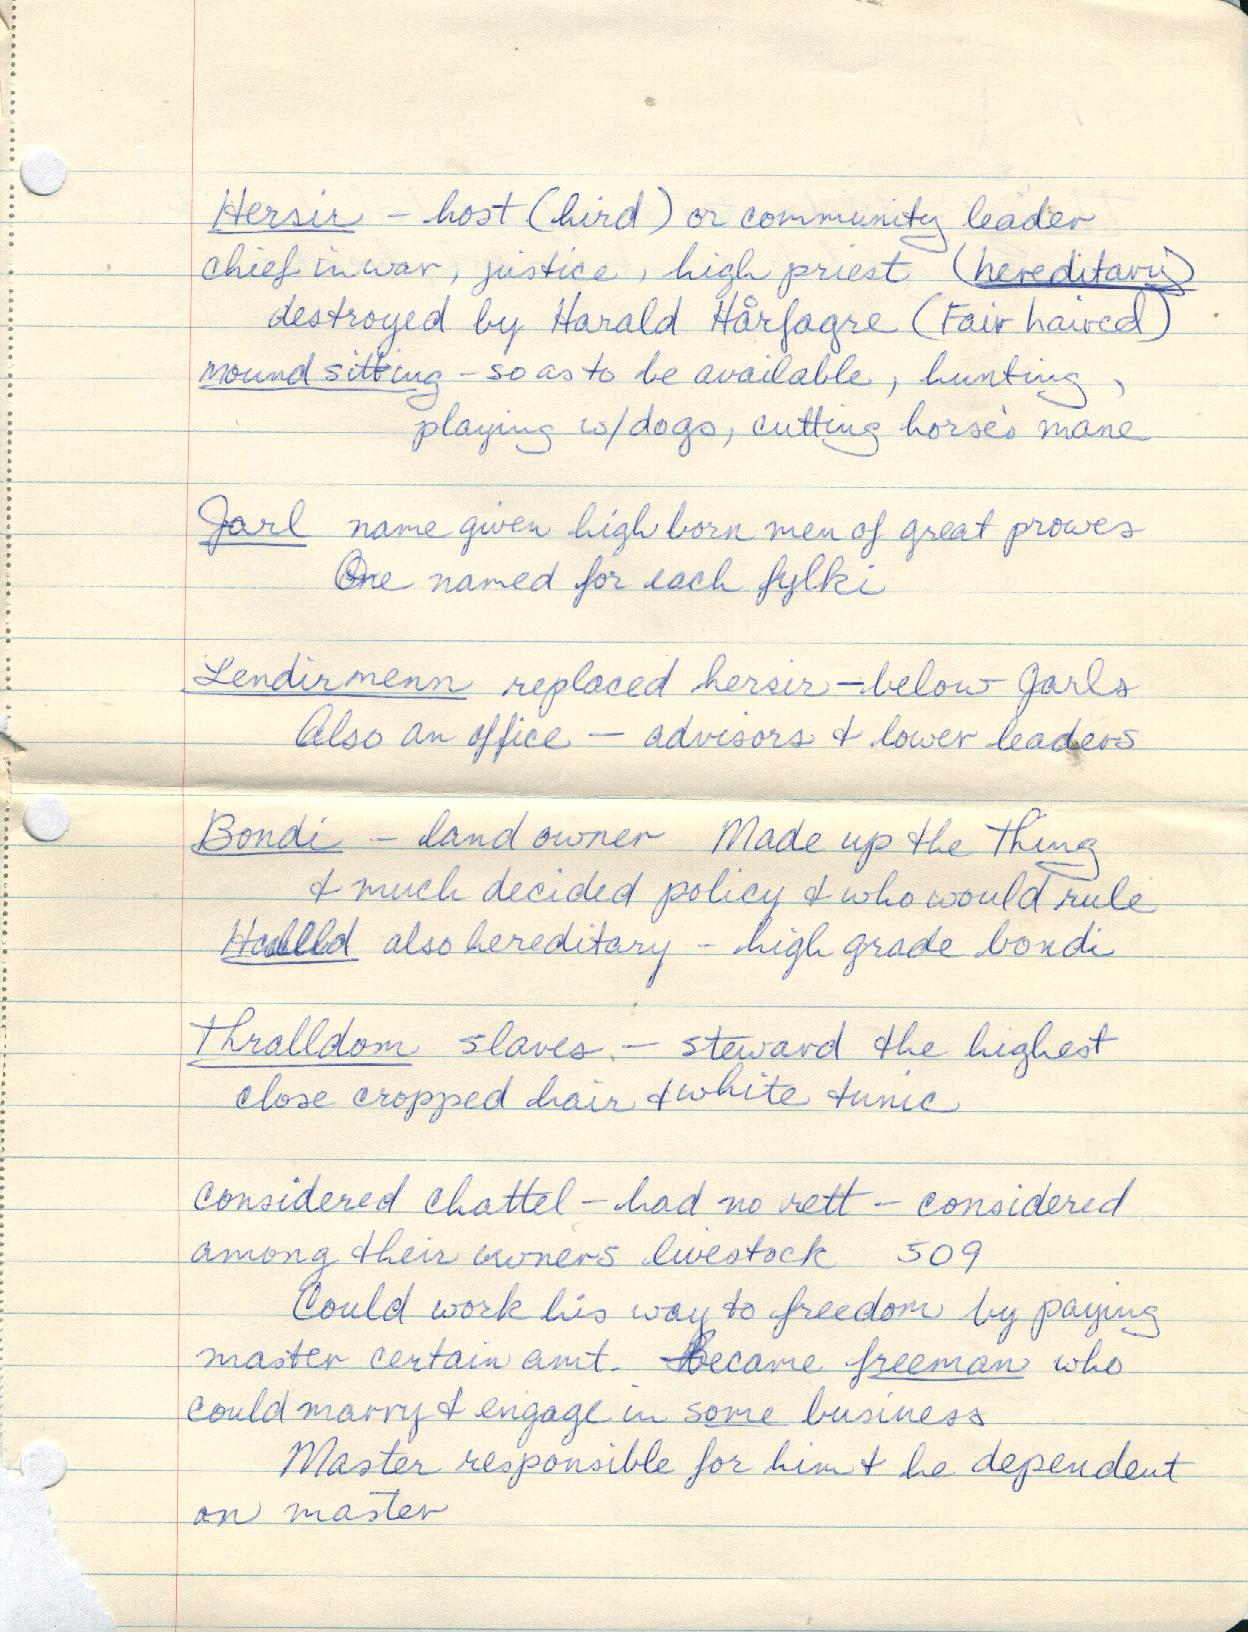 Hersir - host (hird) or community leader
chief in war, justice, high priest (hereditary)
destroyed by Harald Hårfagre (Fair haired)
mound sitting - so as to be available, hunting,
playing w/dogs, cutting horse's mane
Jarl name given high born men of great prowes
One named for each fylki
Lendirmenn replaced hersir - below Jarls
Also an office - advisors & lower leaders
Bondi - land owner Made up the Thing
& much decided policy & who would rule
also hereditary - high grade bondi
Thralldom slaves - steward the highest
close cropped hair & white tunic
considered chattel - had no rett - considered
among their owners livestock 509
Could work his way to freedom by paying
master certain amt. Became freeman who
could marry & engage in some business
Master responsible for him & he dependent
on master